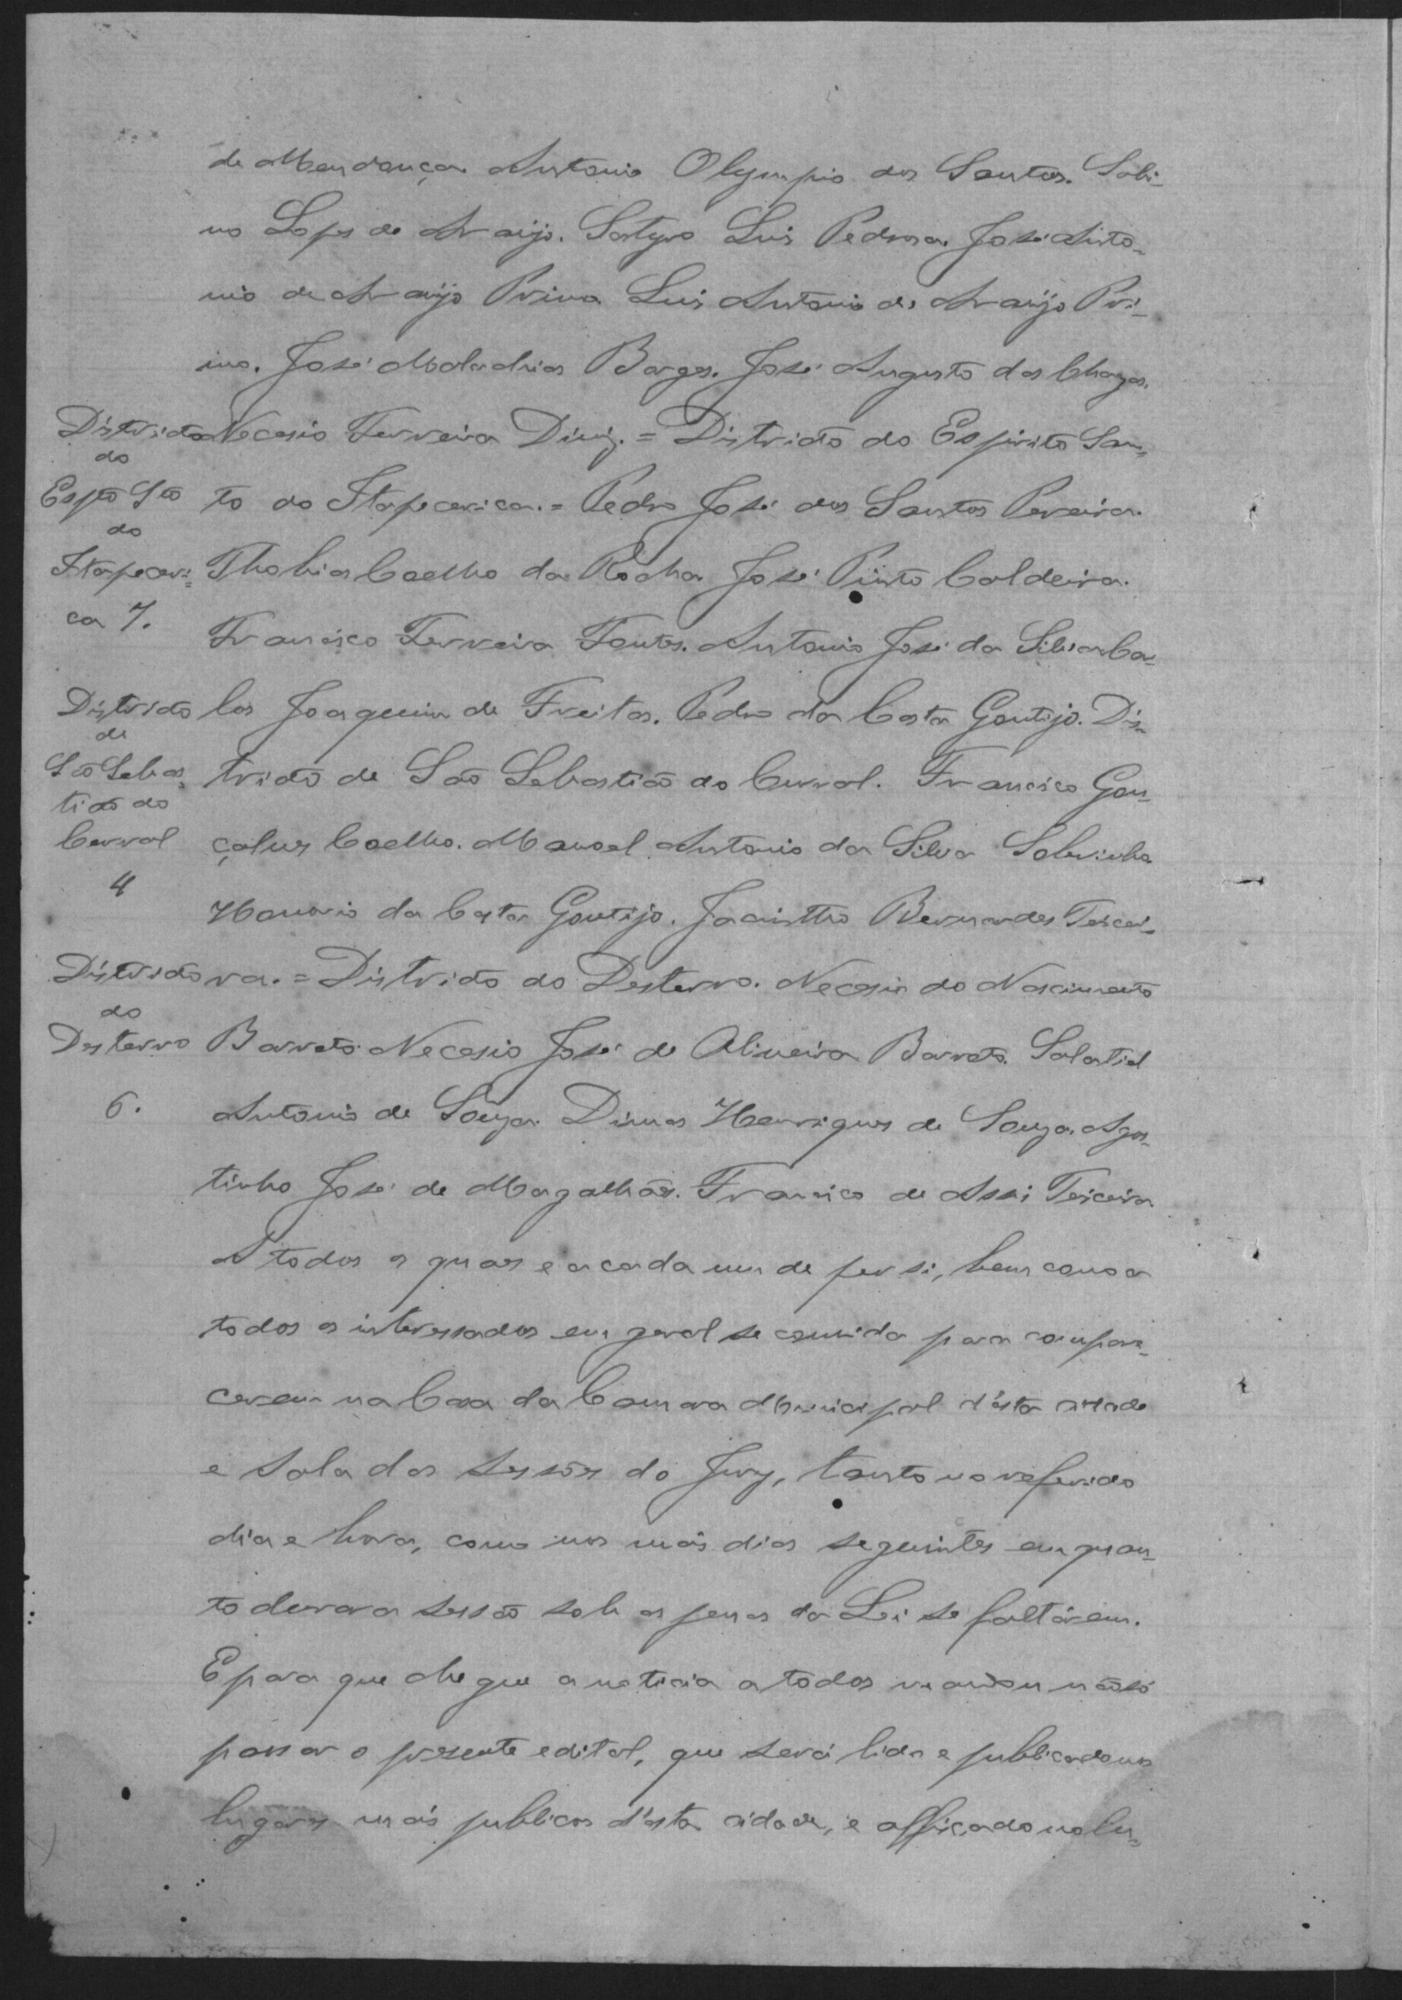 de Mendonça. Antonio Olympio dos Santos. Sabi-
no Lopes de Araujo. Satyro Luis Pedrosa. José Anto-
nio de Araujo Prima Luis Antonio de Araujo Pri-
mo. José Maladias Borges. José Augusto das Chagas.
Necesio Ferreira Diniz. = Districto do Espirito San-
to do Itapecerica. = Pedro José dos Santos Pereira.
Thobias Coelho da Rocha José Pinto Caldeira.
Francisco Ferreira Fontes. Antonio José da Silva Ca-
los Joaquim de Freitas. Pedro da Costa Gontijo. Dis-
tricto de São Sebastião do Curral. Francisco Gon-
çalves Coelho. Manoel Antonio da Silva Sobrinho
Honorio da Costa Gontijo. Jacinttho Bernardes Teixei-
ra. = Districto do Desterro. Necesio do Nascimento
Barreto Necesio José de Oliveira Barreto. Salatiel
Antonio de Souza. Dimas Henriques de Souza. Agos-
tinho José de Magalhães. Francisco de Assi Teixeira
A todos os quaes e a cada um de per si, bem como a
todos os interessados em geral se convida para compare-
cerem na Casa da Camara Municipal d'esta cidade
e sala das sessões do Jury, tanto no referido
dia e hora, como nos mais dias seguintes em quan-
to durar a sessão sob as penas da Lei se faltárem.
E para que chegue a noticia a todos mandou não só
passar o presente edital, que será lido e publicado nos
lugares mais publicos d'esta cidade, e affixado no lu-
Districto
do
Espto Sto
do
Itapeceri-
ca 7.
Districto
de
São Sebas-
tião do
Curral
4
Districto
do
Desterro
6.